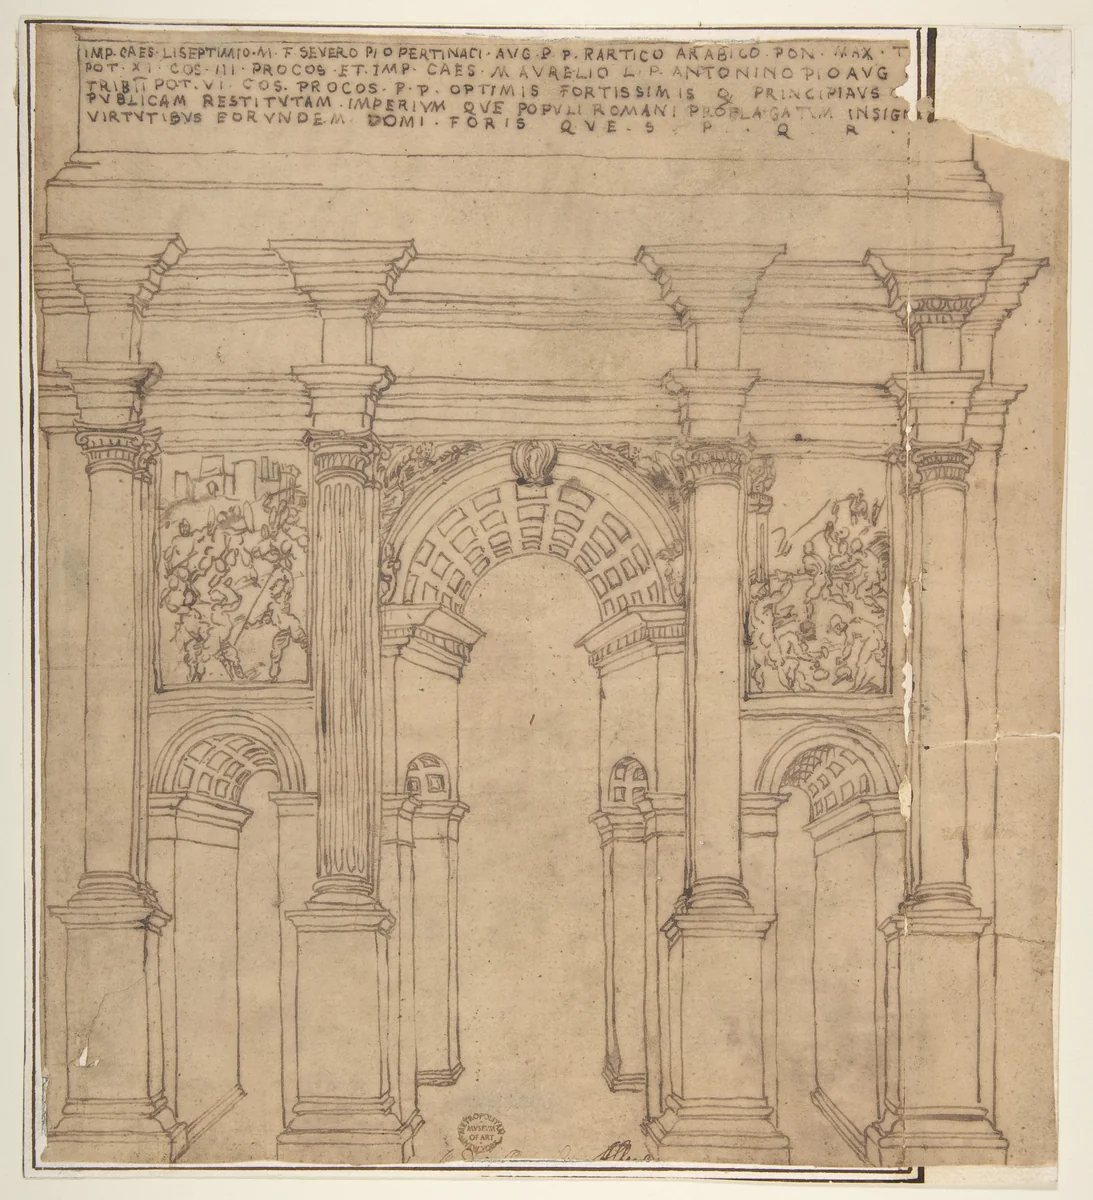 IMP·CAES·LISEPTIMIO·M·F·SEVERO PIO PERTINACI·AVG·P·P·RARTICO ARABICO·PON·MAX·T
POT·XI·COS·III·PROCOS·ET·IMP·CAES·M AVRELIO L·P·ANTONINO PIO AVG
TRIBTI POT·VI·COS·PROCOS·P·P·OPTIMIS FORTISSIMIS Q PRINCIPIAVS
PVBLICAM RESTITVTAM·IMPERIVM QVE POPVLI ROMANI PROPLAGATVM INSIGN
VIRTVTIBVS EORVNDEM·DOMI·FORIS QVE·S·P·Q R
METROPOLITAN
MVSEVM
OF ART
NEW YORK